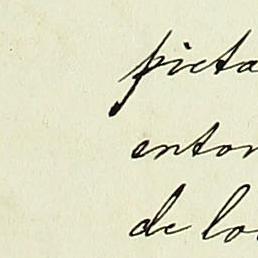 picta
enton
de los